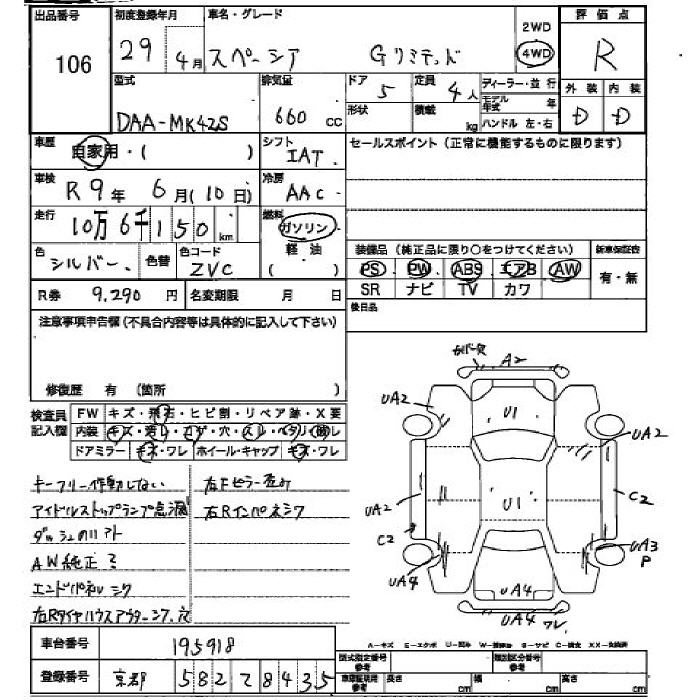 出品番号 初度登録年月 車名・グレード 2WD 評価点
106 29 4月 スペーシア Gリミテッド 4WD R
型式 排気量 ドア 5 定員 4人 ディーラー・並行 外装 内装
DAA-MK42S 660 CC 形状 積載 kg モデル年式 年 ハンドル 左・右 D D
車歴 自家用・( ) シフト IAT セールスポイント(正常に機能するものに限ります)
車検 R9年 6月(10日) 冷房 AAC
走行 10万6千150km 燃料 ガソリン
軽油
( )
色 シルバー 色替 色コード ZVC 装備品(純正品に限り○をつけてください) 新車保証書
PS PW ABS エアB AW 有・無
R券 9,290円 名変期限 月 日 SR ナビ TV カワ
注意事項申告欄(不具合内容等は具体的に記入して下さい) 後日品
修復歴 有 (箇所 )
カバー欠 A2
UA2 U1 UA2
検査員記入欄 FW キズ・飛石・ヒビ割・リペア跡・X要
内装 キズ・汚れ・コゲ・穴・スレ・ベタリ・破レ
ドアミラー キズ・ワレ ホイール・キャップ キズ・ワレ
UA2 U1 C2
C2 UA3
P
UA4 UA4
UA4 ワレ
キーフリー作動しない
アイドルストップランプ点滅 右Rインパネシワ
AW純正
エンドパネル
A-キズ E-エクボ U-凹み
車台番号 195918
型式指定番号 参考 類別区分番号 参考
登録番号 京都 582 ア 8435
長さ cm 幅 cm 高さ cm